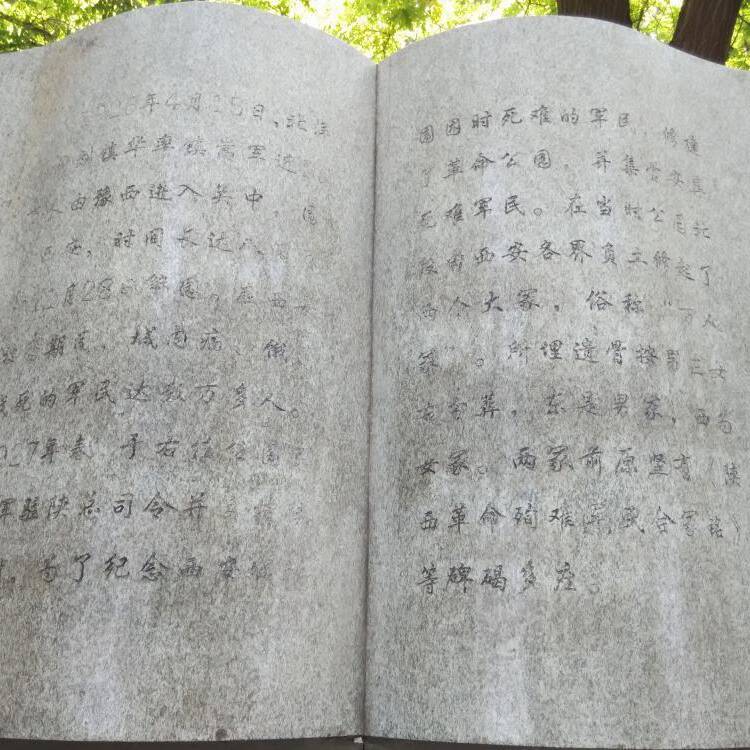 926年4月15日，北洋
刘镇华率镇嵩军近
人由豫西进入关中，围
西安，时间长达八
12月28日解围。在西安
期间，城内病、饿、
战死的军民达数万多人。
927年春，于右任
军驻陕总司令并
为了纪念西安
围困时死难的军民，修建
了革命公园，并集资安置
死难军民。在当时公园北
段由西安各界负土修起了
两个大冢，俗称“万人
冢”。所埋遗骨按男三女
安葬，东是男冢，西为
女冢。两冢前原竖有（陕
西革命殉难军民合冢铭）
等碑碣多座。